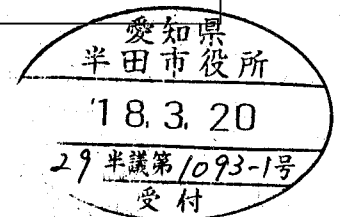 愛知県
半田市役所
'18.3.20
29半議第1093-1号
受付